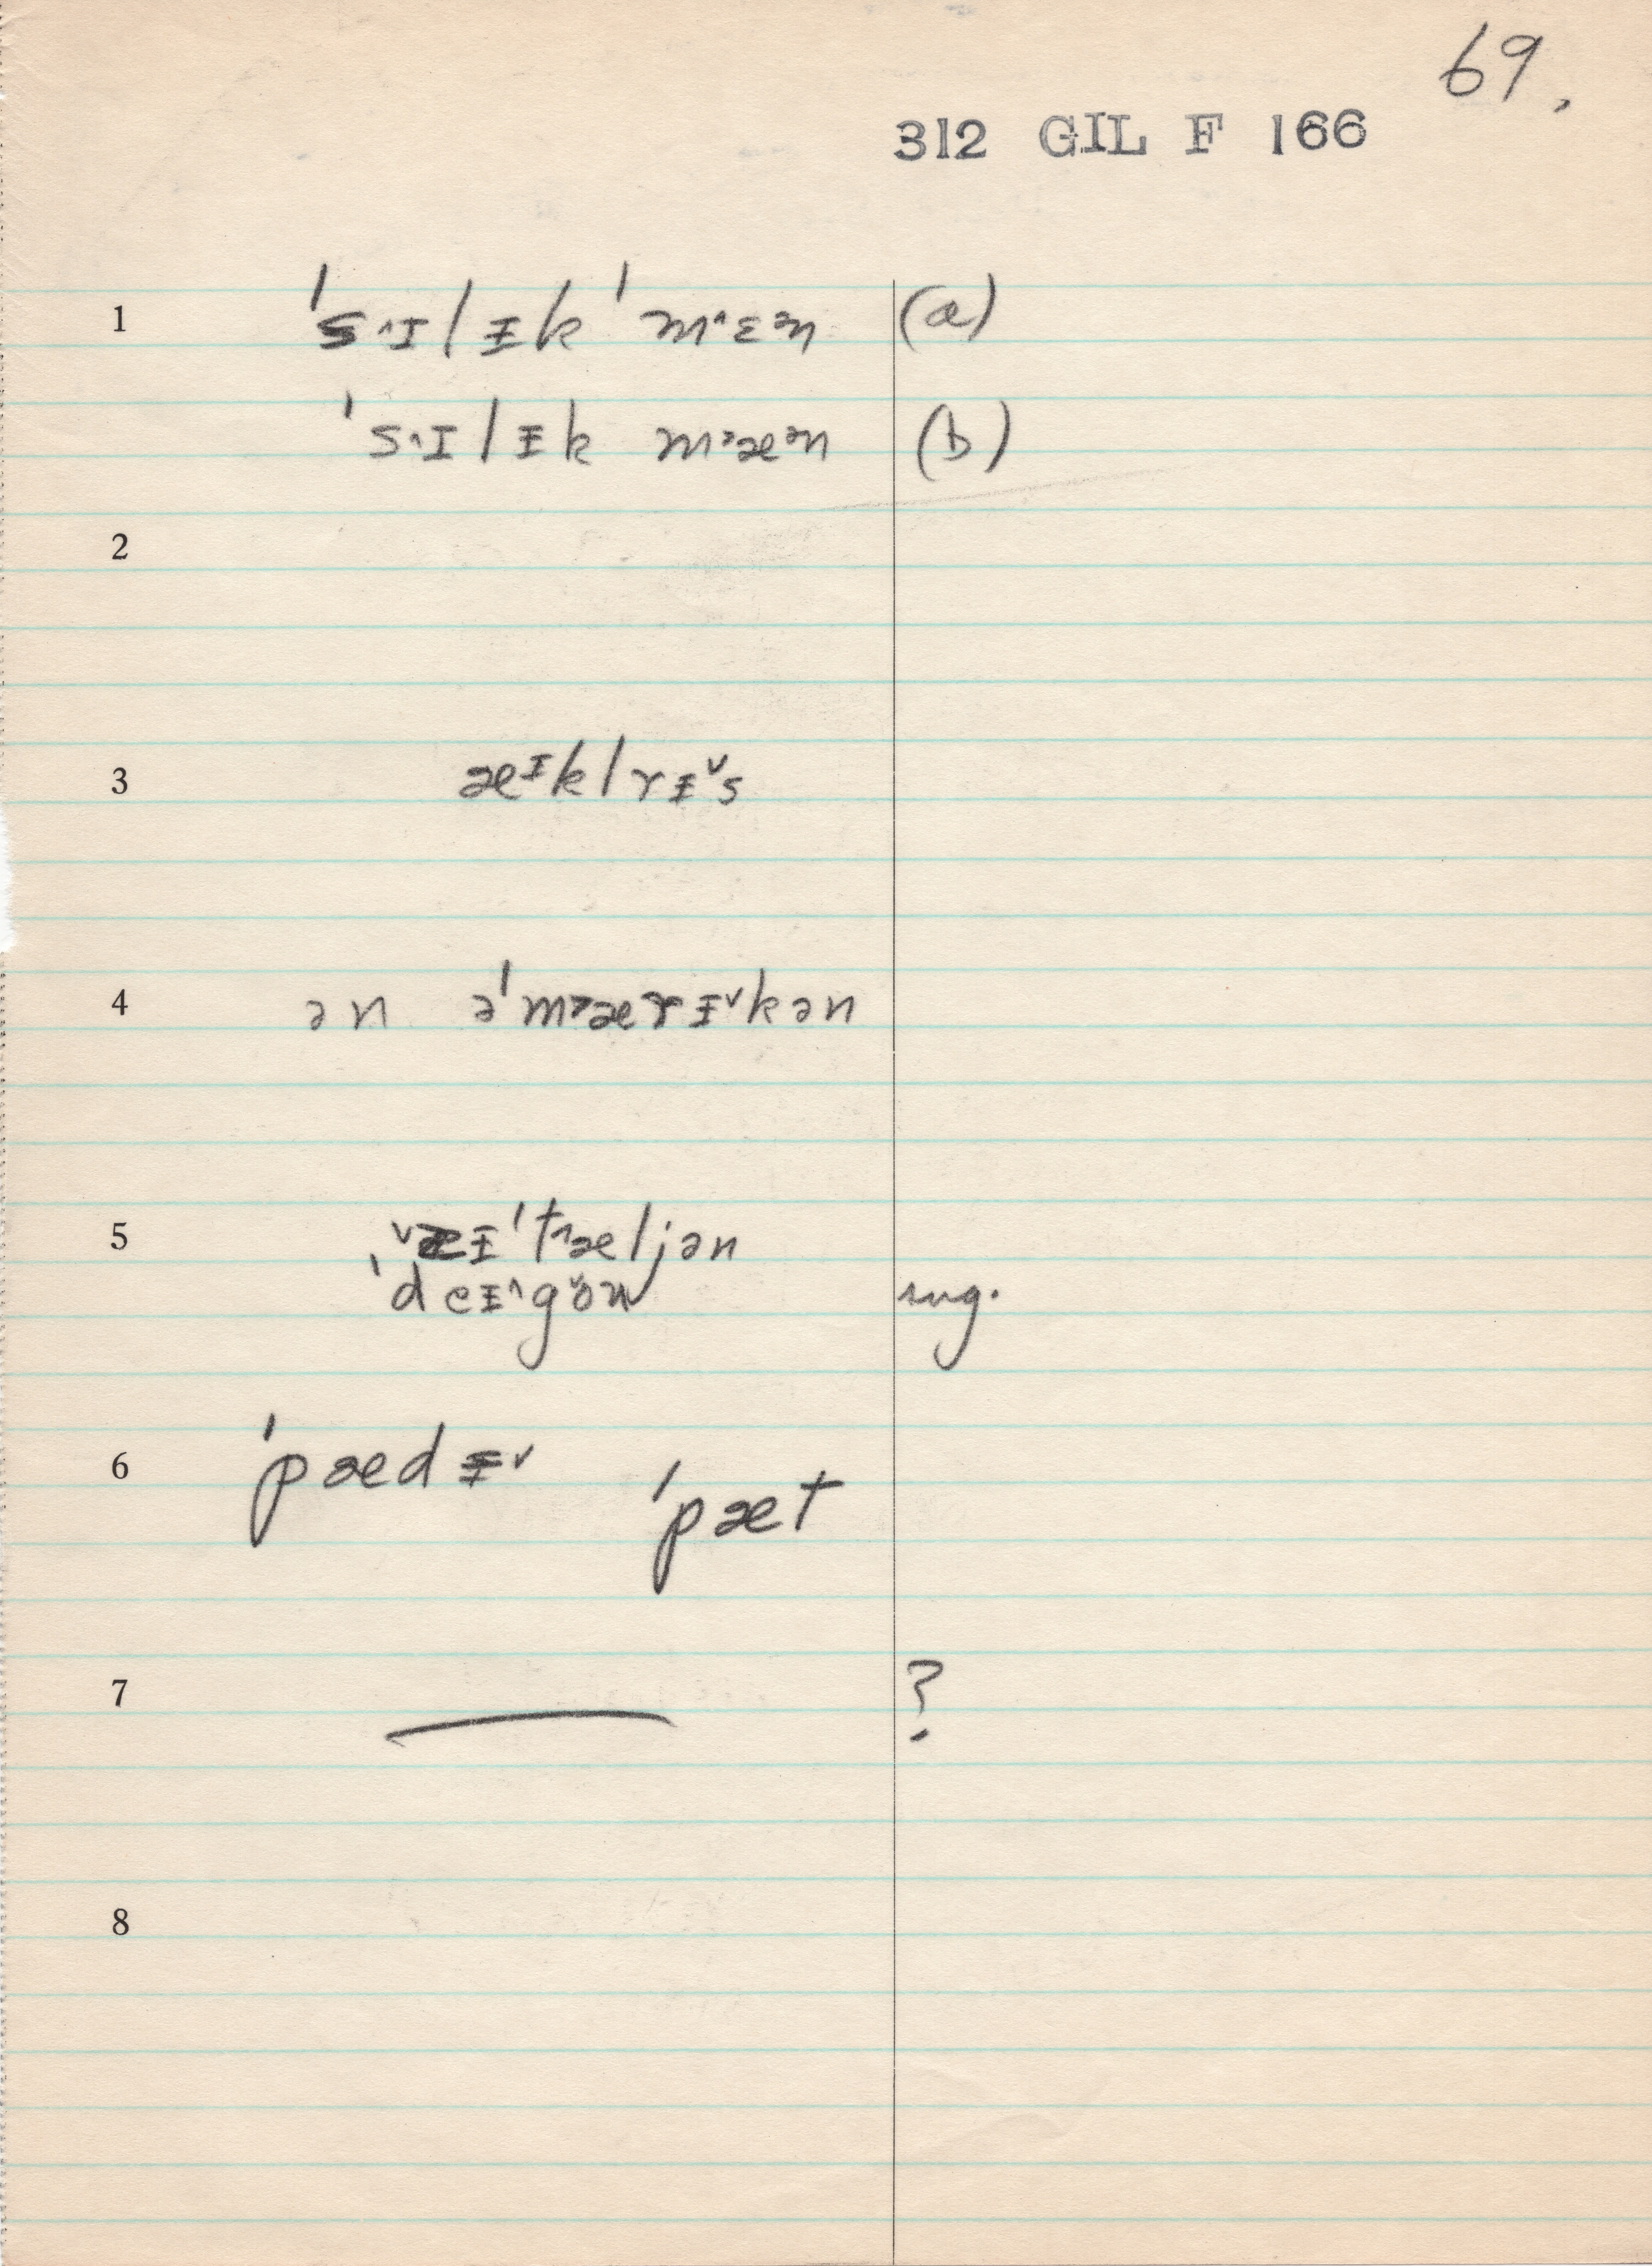 69.
312 GIL F 166
1 ˈsˑ^ɪlɪ̵k ˈmˑ^ɛᵊn (a)
ˈsˑ^ɪlɪ̵k mˑ˃æᵊn (b)
2
3 æᶧklrɪ̵ˇs
4 ən əˈm˃ærɪ̵ˇkən
5 ˈtˑ^æljən
ˈdeɪ̵^gön sug.
6 ˈpædɪ̵ˇ ˈpæt
7 — ?
8